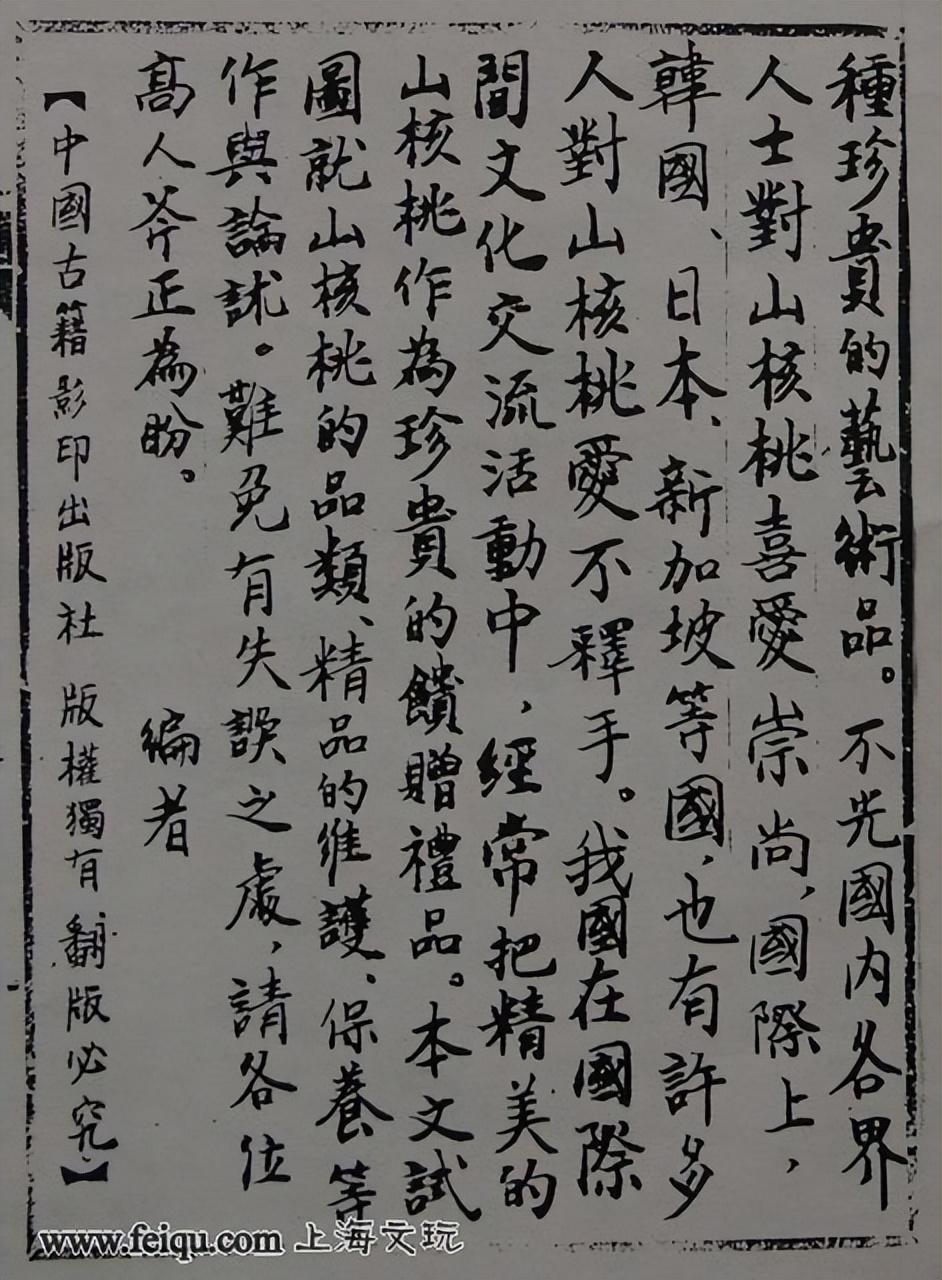 種珍貴的藝術品。不光國内各界
人士對山核桃喜愛崇尚，國際上，
韓國、日本、新加坡等國，也有許多
人對山核桃愛不釋手。我國在國際
間文化交流活動中，經常把精美的
山核桃作為珍貴的饋贈禮品。本文試
圖就山核桃的品類、精品的维護、保養等
作與論訹。難免有失誤之處，請各位
高人斧正為盼。
編者
【中國古籍影印出版社 版權獨有翻版必究】
www.feiqu.com 上海文玩